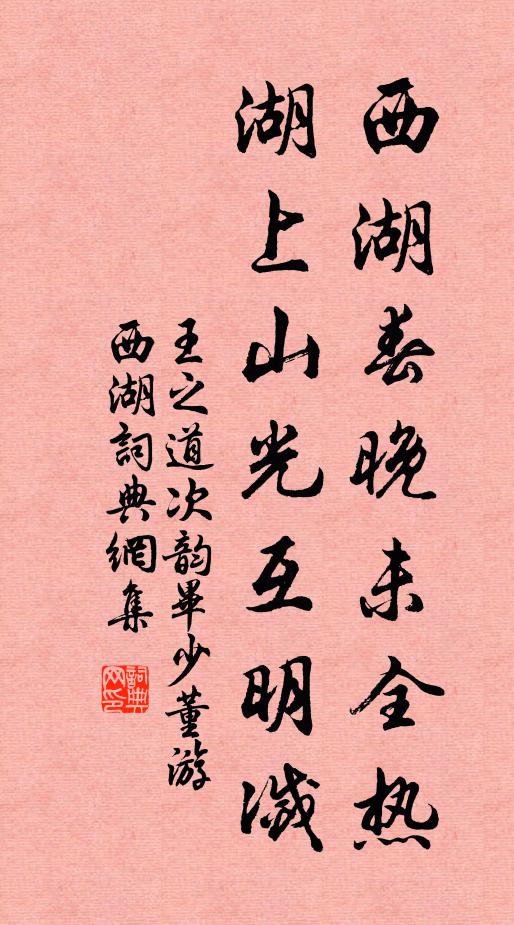 西湖春晚未全热
湖上山光互明滅
王之道次韵畢少董游
西湖詞典網集
詞典网印